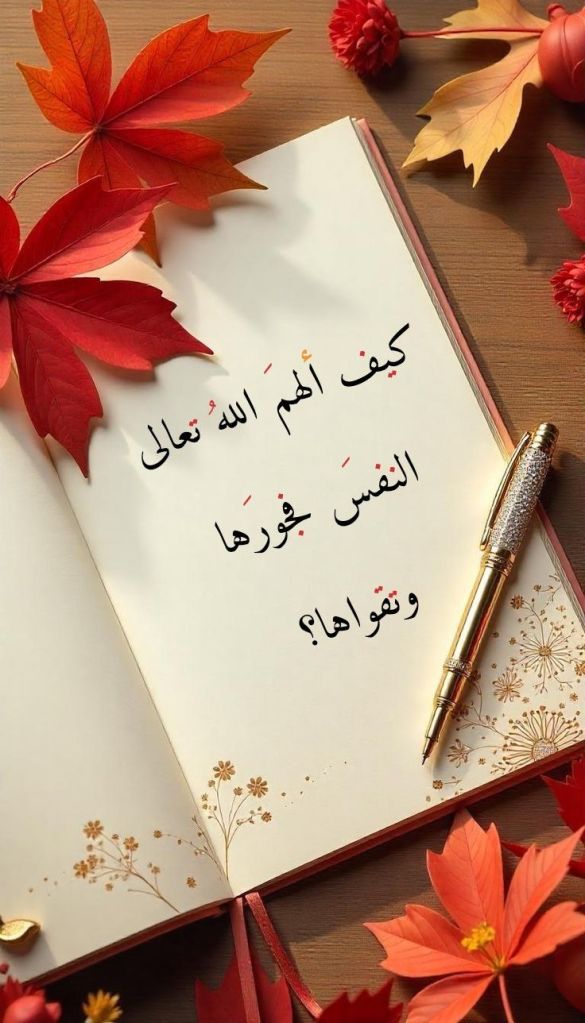 كيف ألهمَ اللهُ تعالى
النفسَ فجورَها
وتقواها؟